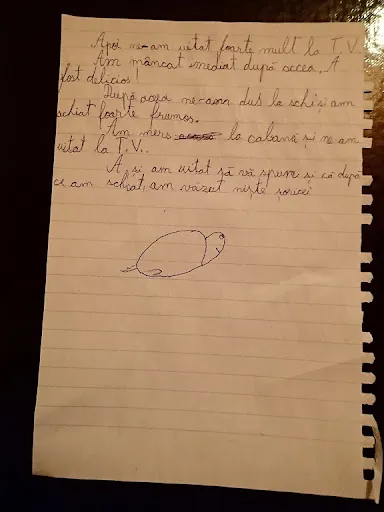 Apoi ne-am uitat foarte mult la T.V.
Am mâncat imediat după aceea. A
fost delicios!
După aceea ne-am dus la schi și am
schiat foarte frumos.
Am mers la cabană și ne-am
uitat la T.V..
A, și am uitat să vă spun și că după
ce am schiat, am văzut niște șoricei